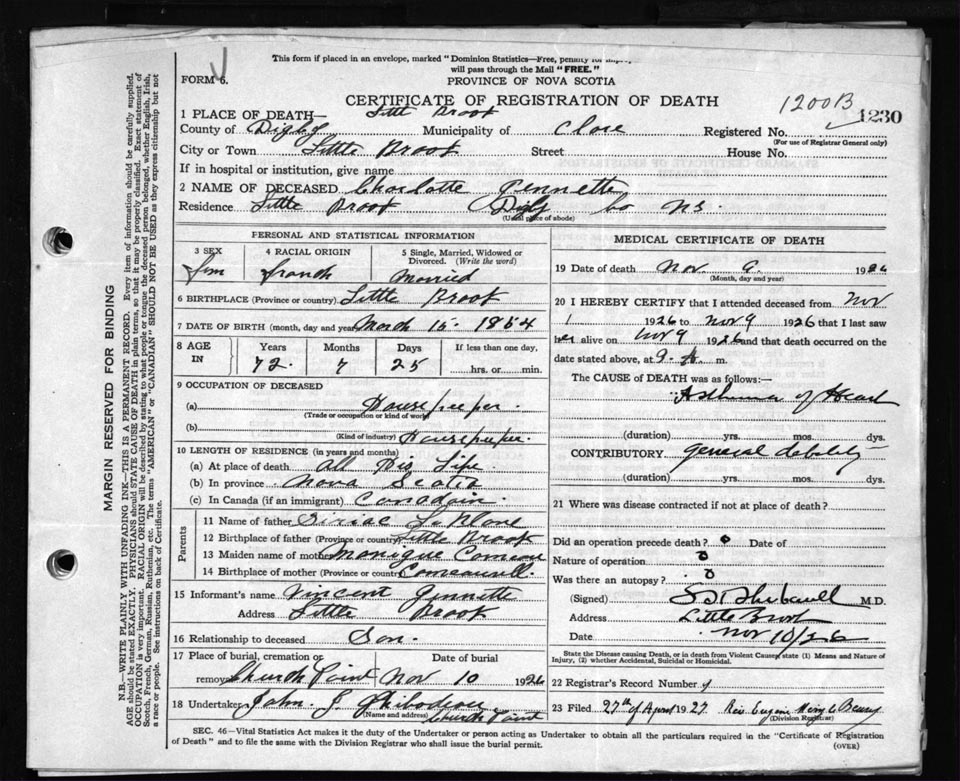 This form if placed in an envelope, marked "Dominion Statistics—Free, penalty for
will pass through the Mail "FREE."
FORM 6.
PROVINCE OF NOVA SCOTIA
CERTIFICATE OF REGISTRATION OF DEATH
1200B
1230
1 PLACE OF DEATH— Little Brook
County of Digby Municipality of Clare Registered No.
(For use of Registrar General only)
City or Town Little Brook Street House No.
If in hospital or institution, give name
2 NAME OF DECEASED Charlotte Pennette
Residence Little Brook Digby Co NS.
(Usual place of abode)
PERSONAL AND STATISTICAL INFORMATION
3 SEX 4 RACIAL ORIGIN 5 Single, Married, Widowed or
Divorced. (Write the word)
Fem French Married
6 BIRTHPLACE (Province or country) Little Brook
7 DATE OF BIRTH (month, day and year) March 15. 1854
8 AGE IN Years Months Days If less than one day,
72. 7 25 hrs. or min.
9 OCCUPATION OF DECEASED
(a) Housekeeper.
(Trade or occupation or kind of work)
(b) Housekeeper.
(Kind of industry)
10 LENGTH OF RESIDENCE (in years and months)
(a) At place of death All Life
(b) In province Nova Scotia
(c) In Canada (if an immigrant) Canadain.
Parents
11 Name of father Siriac
12 Birthplace of father (Province or country) Little Brook
13 Maiden name of mother Monique Comeau
14 Birthplace of mother (Province or country)
15 Informant's name Vincent
Address Little Brook
16 Relationship to deceased Son.
17 Place of burial, cremation or Date of burial
removal Church Point Nov 10 1926
18 Undertaker John
(Name and address) Church Point
MEDICAL CERTIFICATE OF DEATH
19 Date of death Nov. 9. 1926
(Month, day and year)
20 I HEREBY CERTIFY that I attended deceased from Nov
1 1926 to Nov 9 1926 that I last saw
her alive on Nov 9 1926 and that death occurred on the
date stated above, at 9. A. m.
The CAUSE of DEATH was as follows:—
Asthma of Heart
(duration) yrs. mos. dys.
CONTRIBUTORY general debility
(duration) yrs. mos. dys.
21 Where was disease contracted if not at place of death?
Did an operation precede death? o Date of
Nature of operation o
Was there an autopsy? o
(Signed) M.D.
Address Little Brook
Date Nov 10/26
State the Disease causing Death, or in death from Violent Causes, state (1) Means and Nature of
Injury, (2) whether Accidental, Suicidal or Homicidal.
22 Registrar's Record Number
23 Filed 27th of April 1927 Rev. Eugene
(Division Registrar)
SEC. 46—Vital Statistics Act makes it the duty of the Undertaker or person acting as Undertaker to obtain all the particulars required in the "Certificate of Registration
of Death" and to file the same with the Division Registrar who shall issue the burial permit.
(OVER)
MARGIN RESERVED FOR BINDING
N.B.—WRITE PLAINLY WITH UNFADING INK—THIS IS A PERMANENT RECORD. Every item of information should be carefully supplied.
AGE should be stated EXACTLY. PHYSICIANS should STATE CAUSE OF DEATH in plain terms, so that it may be properly classified. Exact statement of
OCCUPATION is very important. RACIAL ORIGIN will be described by stating to what people or tongue the deceased person belonged, whether English, Irish,
Scotch, French, German, Russian, Ruthenian, etc. The terms "AMERICAN" or "CANADIAN" SHOULD NOT BE USED as they express citizenship but not
a race or people. See instructions on back of Certificate.